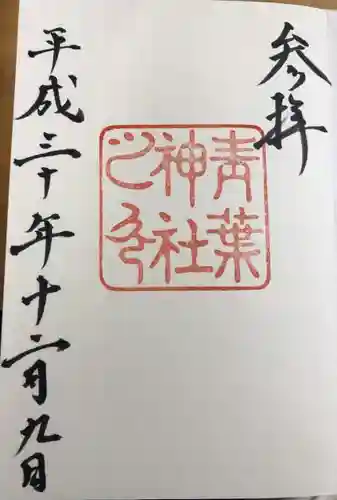 参拝
青葉
神社
之印
平成三十年十二月九日